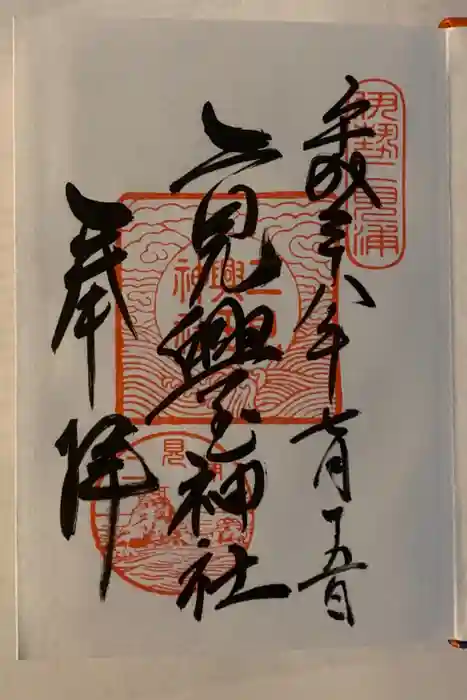 伊勢二見浦
平成二十八年七月十五日
二見興玉神社
二見興玉神社
奉拝